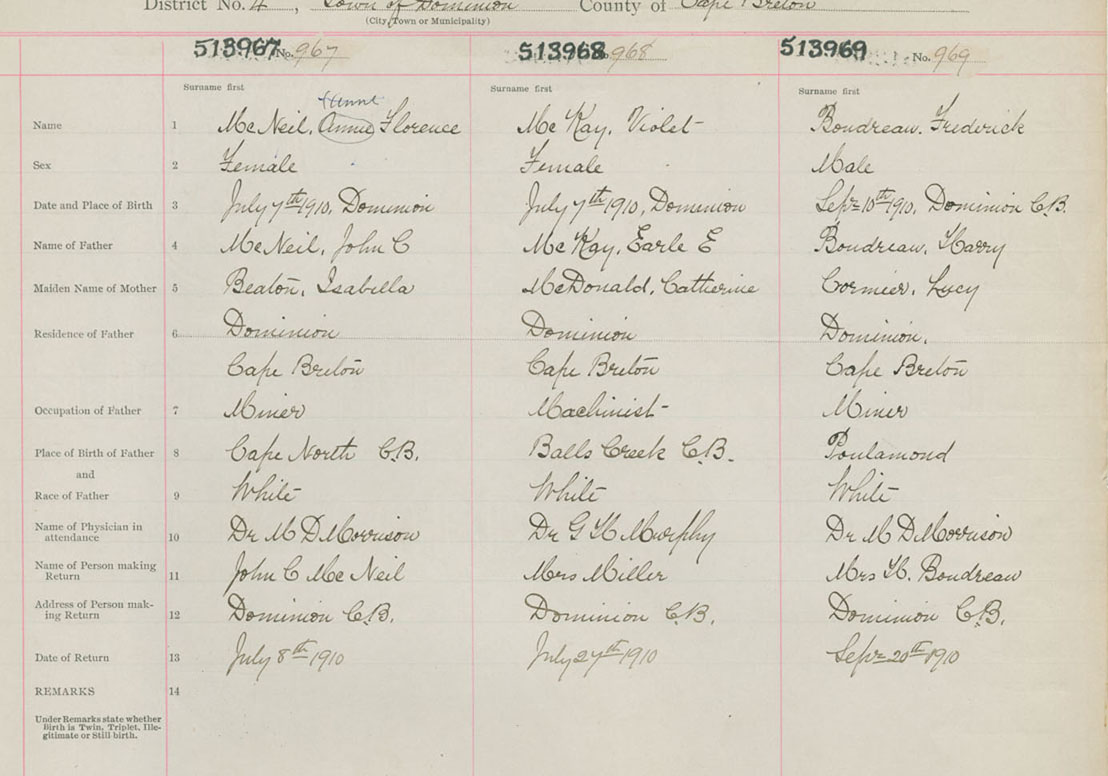 District No. 4, Town of Dominion County of Cape Breton
(City, Town or Municipality)
513967 No. 967 513968 968 513969 No. 969
Surname first Surname first Surname first
Name 1 McNeil, Annie Florence McKay, Violet Boudreau, Frederick
Sex 2 Female Female Male
Date and Place of Birth 3 July 7th 1910, Dominion July 7th 1910, Dominion Sept 10th 1910, Dominion C.B.
Name of Father 4 McNeil, John C McKay, Earle E Boudreau, Harry
Maiden Name of Mother 5 Beaton, Isabella McDonald, Catherine Cormier, Lucy
Residence of Father 6 Dominion Dominion Dominion,
Cape Breton Cape Breton Cape Breton
Occupation of Father 7 Miner Machinist Miner
Place of Birth of Father 8 Cape North C.B. Balls Creek C.B. Poulamond
and
Race of Father 9 White White White
Name of Physician in
attendance 10 Dr M D Morrison Dr G H Murphy Dr M D Morrison
Name of Person making
Return 11 John C McNeil Mrs Miller Mrs H. Boudreau
Address of Person mak-
ing Return 12 Dominion C.B. Dominion C.B. Dominion C.B.
Date of Return 13 July 8th 1910 July 27th 1910 Sept 20th 1910
REMARKS 14
Under Remarks state whether
Birth is Twin, Triplet, Ille-
gitimate or Still-birth.